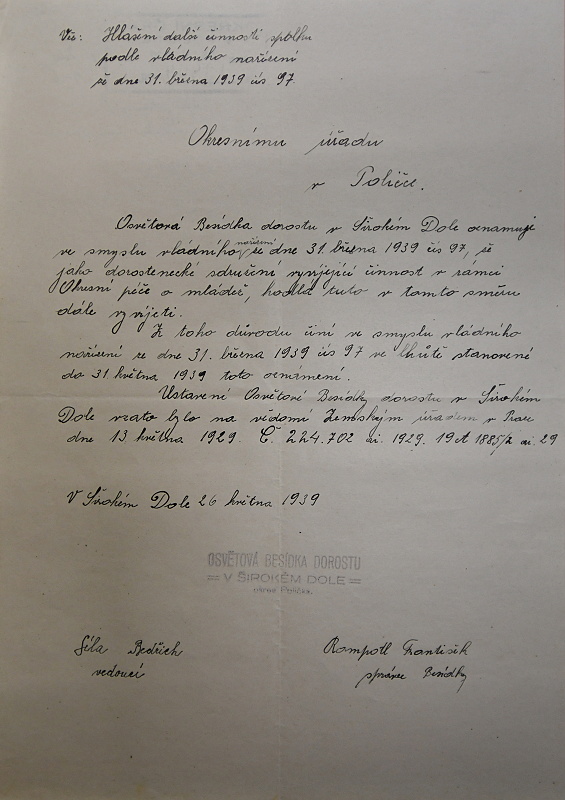 Věc: Hlášení další činnosti spolku
podle vládního nařízení
ze dne 31. března 1939 čís 97.
Okresnímu úřadu
v Poličce.
Osvětová Besídka dorostu v Širokém Dole oznamuje
ve smyslu vládního nařízení ze dne 31. března 1939 čís 97, že
jako dorostenecké sdružení vyvíjející činnost v rámci
Okresní péče o mládež, hodlá tuto v tomto směru
dále vyvíjeti.
Z toho důvodu činí ve smyslu vládního
nařízení ze dne 31. března 1939 čís 97 ve lhůtě stanovené
do 31 května 1939 toto oznámení.
Ustavení Osvětové Besídky dorostu v Širokém
Dole vzato bylo na vědomí Zemským úřadem v Praze
dne 13 května 1929. Č. 224.702 ai. 1929. 19 A 1885/2 ai. 29
V Širokém Dole 26 května 1939
OSVĚTOVÁ BESÍDKA DOROSTU
= V ŠIROKÉM DOLE =
okres Polička.
Síla Bedřich
vedoucí
Rompotl František
správce Besídky